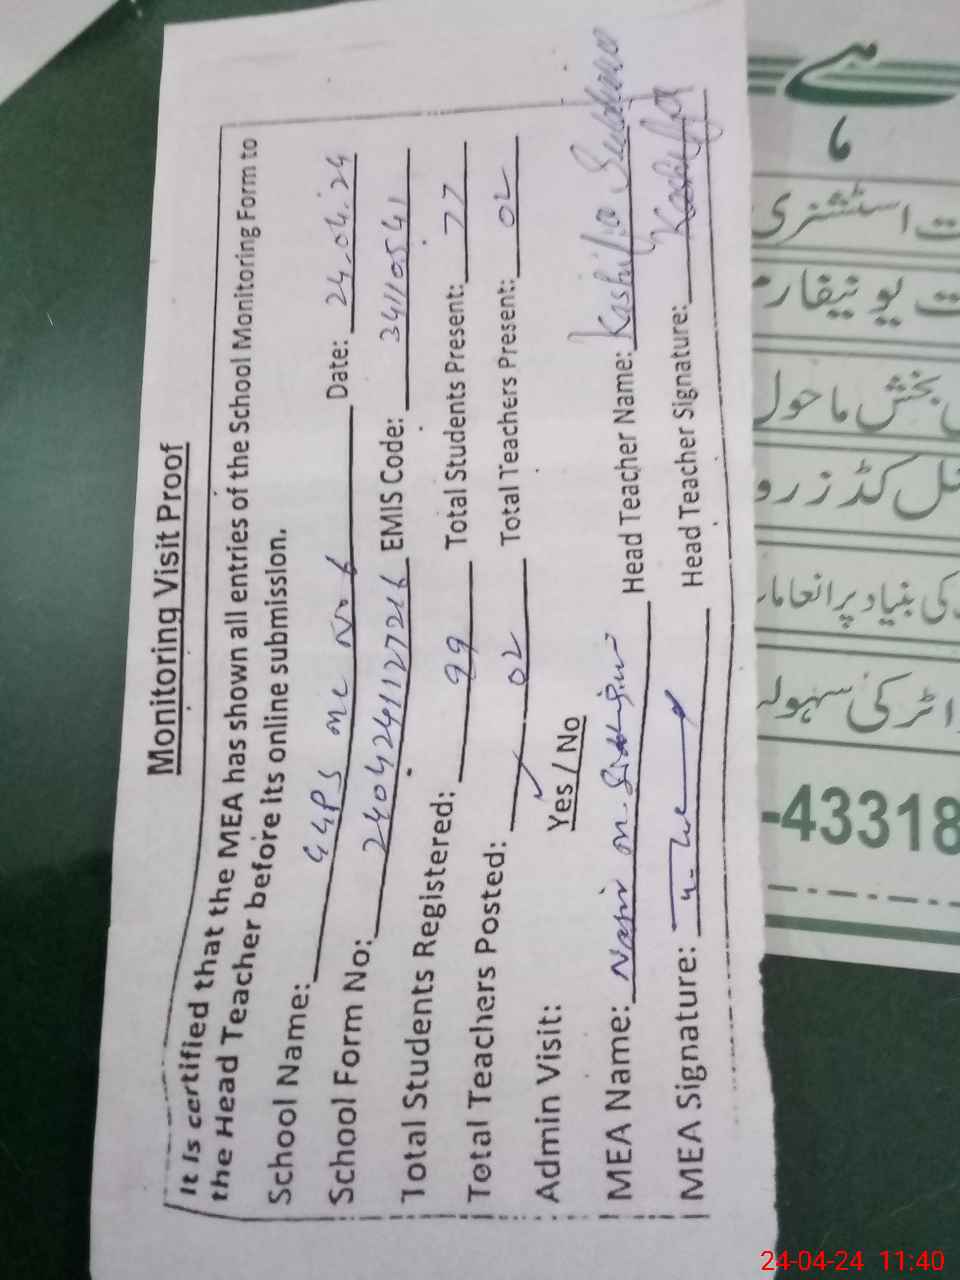 Monitoring Visit Proof
It is certified that the MEA has shown all entries of the School Monitoring Form to
the Head Teacher before its online submission.
School Name: GGPS mc No 6 Date: 24.04.24
School Form No: 2404241127216 EMIS Code: 34110541
Total Students Registered: 99 Total Students Present: 77
Total Teachers Posted: 02 Total Teachers Present: 02
Admin Visit: Yes / No
MEA Name: Nasir m Head Teacher Name: Kashifa
MEA Signature: Head Teacher Signature: Kashifa
ہے
ت اسٹیشنری
ت یونیفارم
بخش ماحول
کڈز رو
کی بنیاد پر انعاما
اٹر کی سہول
-43318
24-04-24 11:40